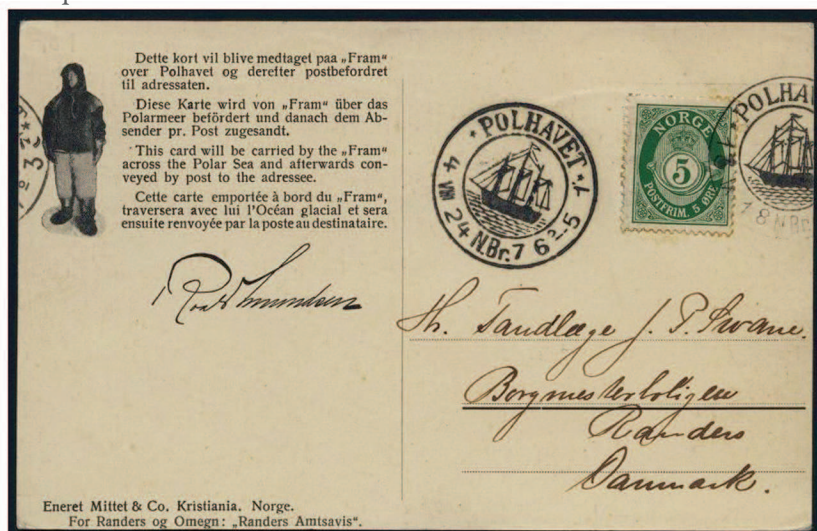 Dette kort vil blive medtaget paa „Fram“
over Polhavet og derefter postbefordret
til adressaten.
Diese Karte wird von „Fram“ über das
Polarmeer befördert und danach dem Ab-
sender pr. Post zugesandt.
This card will be carried by the „Fram“
across the Polar Sea and afterwards con-
veyed by post to the adressee.
Cette carte emportée à bord du „Fram“,
traversera avec lui l'Océan glacial et sera
ensuite renvoyée par la poste au destinataire.
POLHAVET
4 VIII 24 N.Br. 76 2-5
NORGE
5
POSTFRIM. 5 ØRE
POLHAV
78 N.BR
Roald Amundsen
Hr. Tandlæge J. P. Swane.
Borgmesterboligen
Randers
Danmark.
Eneret Mittet & Co. Kristiania. Norge.
For Randers og Omegn: „Randers Amtsavis“.